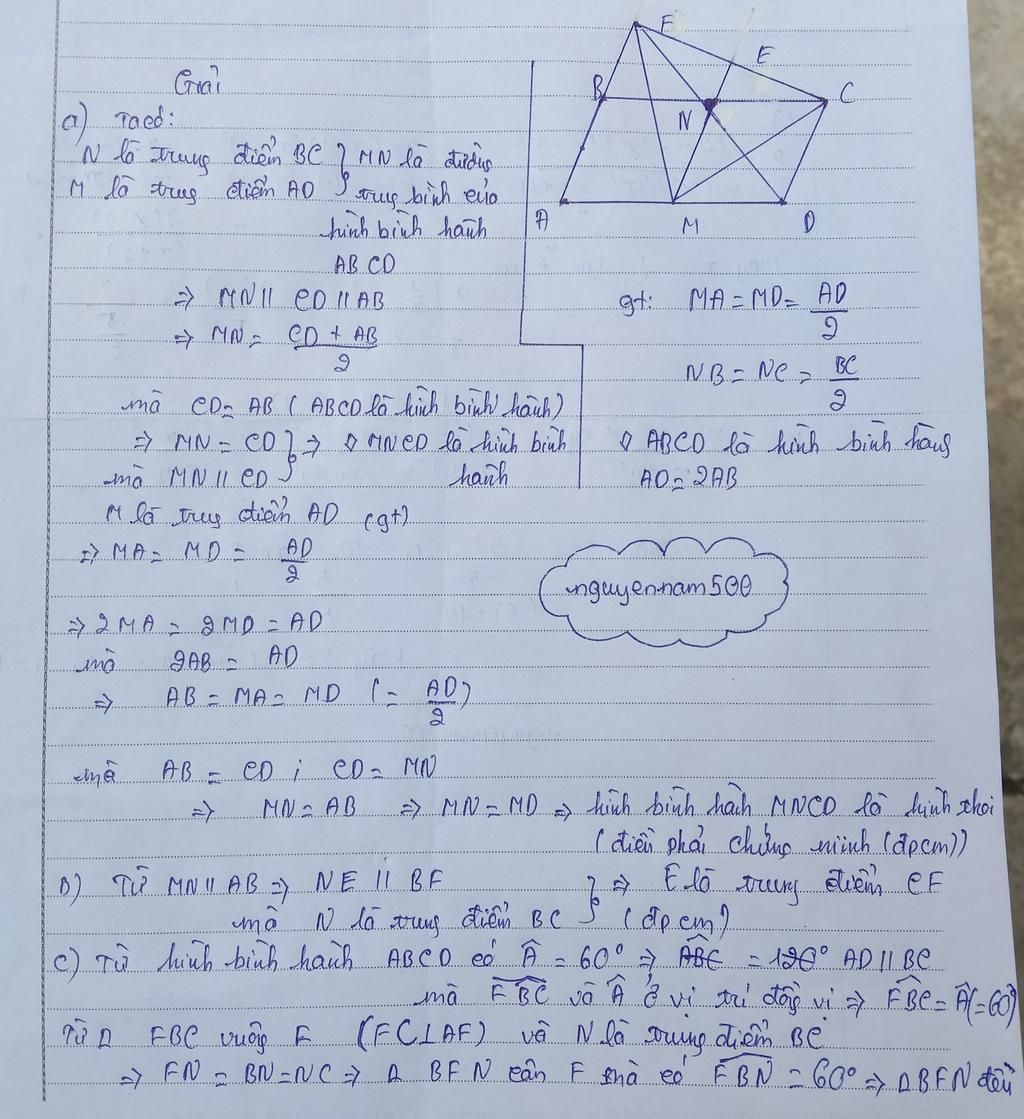 Giải
a) Ta có:
N là trung điểm BC } MN là đường
M là trug điểm AD } trug bình của
hình bình hành
ABCD
⇒ MN // CD // AB
⇒ MN = (CD + AB)/2
mà CD = AB (ABCD là hình bình hành)
⇒ MN = CD } ⇒ ◊ MNCD là hình bình
mà MN // CD } hành
M là trug điểm AD (gt)
⇒ MA = MD = AD/2
⇒ 2MA = 2MD = AD
mà 2AB = AD
⇒ AB = MA = MD (= AD/2)
mà AB = CD ; CD = MN
⇒ MN = AB ⇒ MN = MD ⇒ hình bình hành MNCD là hình thoi
(điều phải chứng minh (đpcm))
b) Từ MN // AB ⇒ NE // BF } ⇒ E là trung điểm CF
mà N là trung điểm BC } (đpcm)
c) Từ hình bình hành ABCD có Â = 60° ⇒ ABC = 120° AD // BC
mà FBC và Â ở vị trí đồng vị ⇒ FBC = Â (= 60°)
Từ Δ FBC vuông F (FC⊥AF) và N là trung điểm BC
⇒ FN = BN = NC ⇒ Δ BFN cân F mà có FBN = 60° ⇒ ΔBFN đều
F
E
B
C
N
A
M
D
gt: MA = MD = AD/2
NB = NC = BC/2
◊ ABCD là hình bình hàng
AD = 2AB
nguyennam500